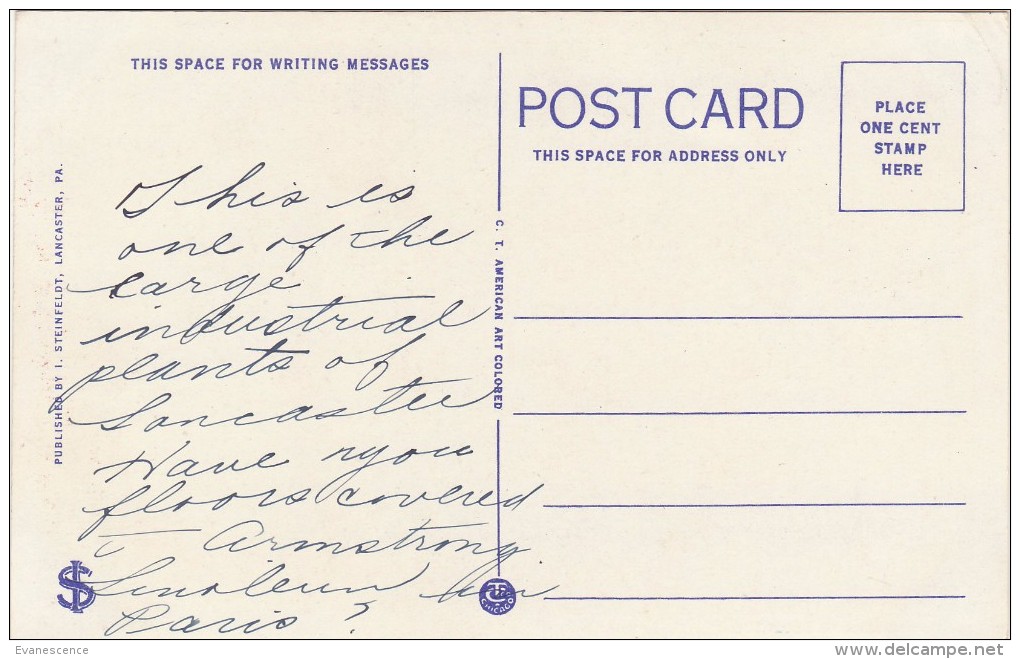 THIS SPACE FOR WRITING MESSAGES
This is
one of the
large
industrial
plants of
Lancaster
Have you
floors covered
Armstrong
Linoleum in
Paris?
PUBLISHED BY I. STEINFELDT, LANCASTER, PA.
C. T. AMERICAN ART COLORED
CHICAGO
POST CARD
THIS SPACE FOR ADDRESS ONLY
PLACE
ONE CENT
STAMP
HERE
Evanescence
delcampe.net